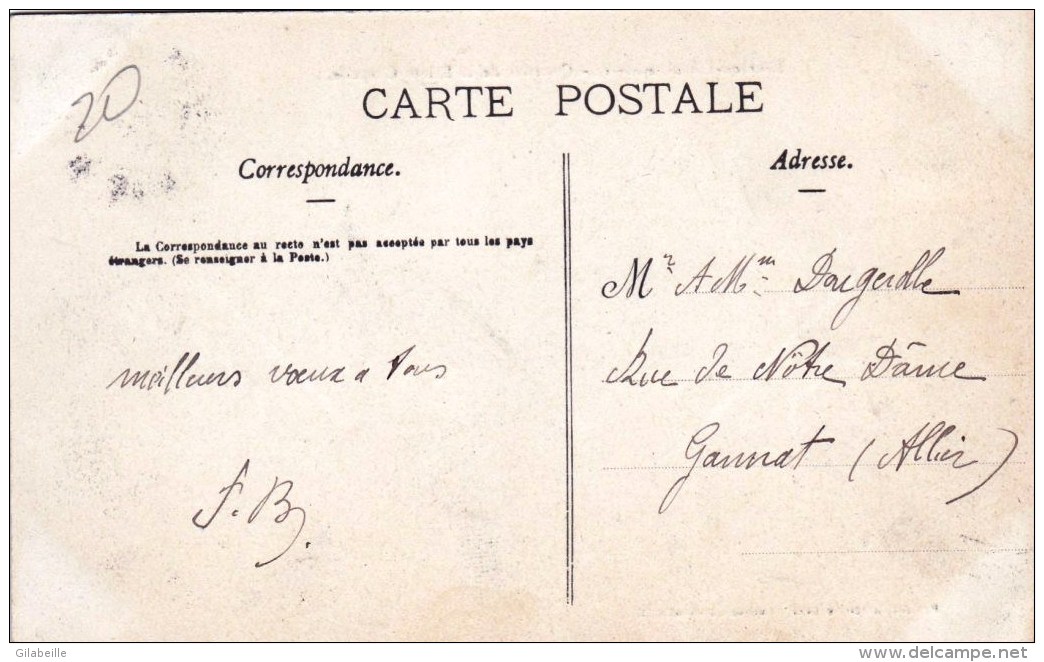 20
CARTE POSTALE
Correspondance.
La Correspondance au recto n'est pas acceptée par tous les pays
étrangers. (Se renseigner à la Poste.)
meilleurs vœux a tous
F. B.
Adresse.
Mr & Mme
Rue de Nôtre Dâme
Gannat (Allier)
Gilabeille
www.delcampe.net